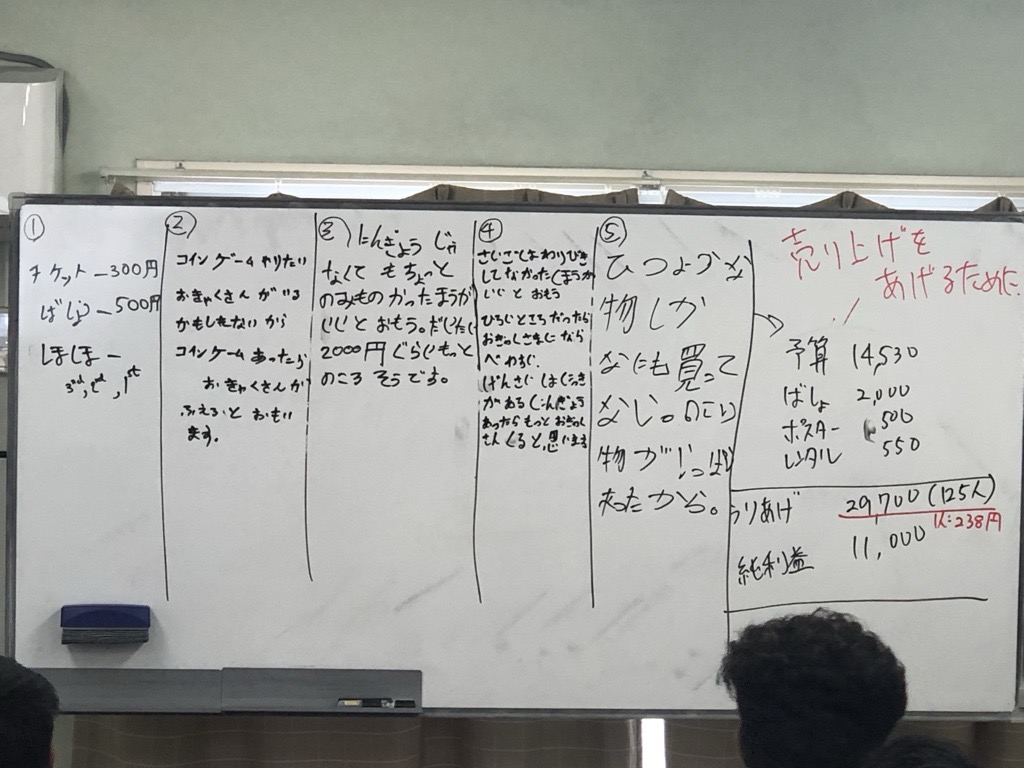 ①
チケット - 300円
ばしょ - 500円
ほほー
3rd, 2nd, 1st
②
コインゲームやりたい
おきゃくさんがいる
かもしれないから
コインゲームあったら
おきゃくさんが
ふえると おもい
ます。
③ にんぎょう じゃ
なくて もちょっと
のみもの かったほうが
いいと おもう。だいたい
2000円ぐらいもっと
のころ そうです。
④
さいごし
してなかったほうが
いいと おもう
ひろいところだったら
おきゃくさまに なら
べ
げんさい
がある にんぎょう
あったら もっと おきゃく
さん くると思います
⑤
ひつような
物しか
なにも買って
ない。のこり
物が いっぱい
あったから。
売り上げを
あげるために
予算 14,530
ばしょ 2,000
ポスター 500
レンタル 550
うりあげ 29,700 (125人)
1人:238円
純利益 11,000